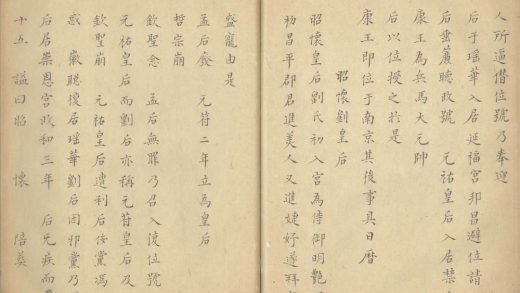 人所逼僭位號乃奉迎
后于瑶華入居延福宮邦昌避位請
后垂簾聽政號　元祐皇后入居禁
康王為兵馬大元帥
后以位授之於是
康王即位于南京其後事具日曆
昭懷劉皇后
昭懷皇后劉氏初入宮為侍御明艷
初昌平郡君進美人又進婕妤遂拜
盛寵由是
孟后廢　元符二年立為皇后
哲宗崩
欽聖念　孟后無罪乃召入復位號
元祐皇后而劉后亦稱元符皇后及
欽聖崩　元祐皇后遭利后佞黨馮
惑　徽聪復居瑶華劉后因邪黨乃
后居崇恩宮政和三年　后无疾而
十五　謚曰昭　懷　陪葬